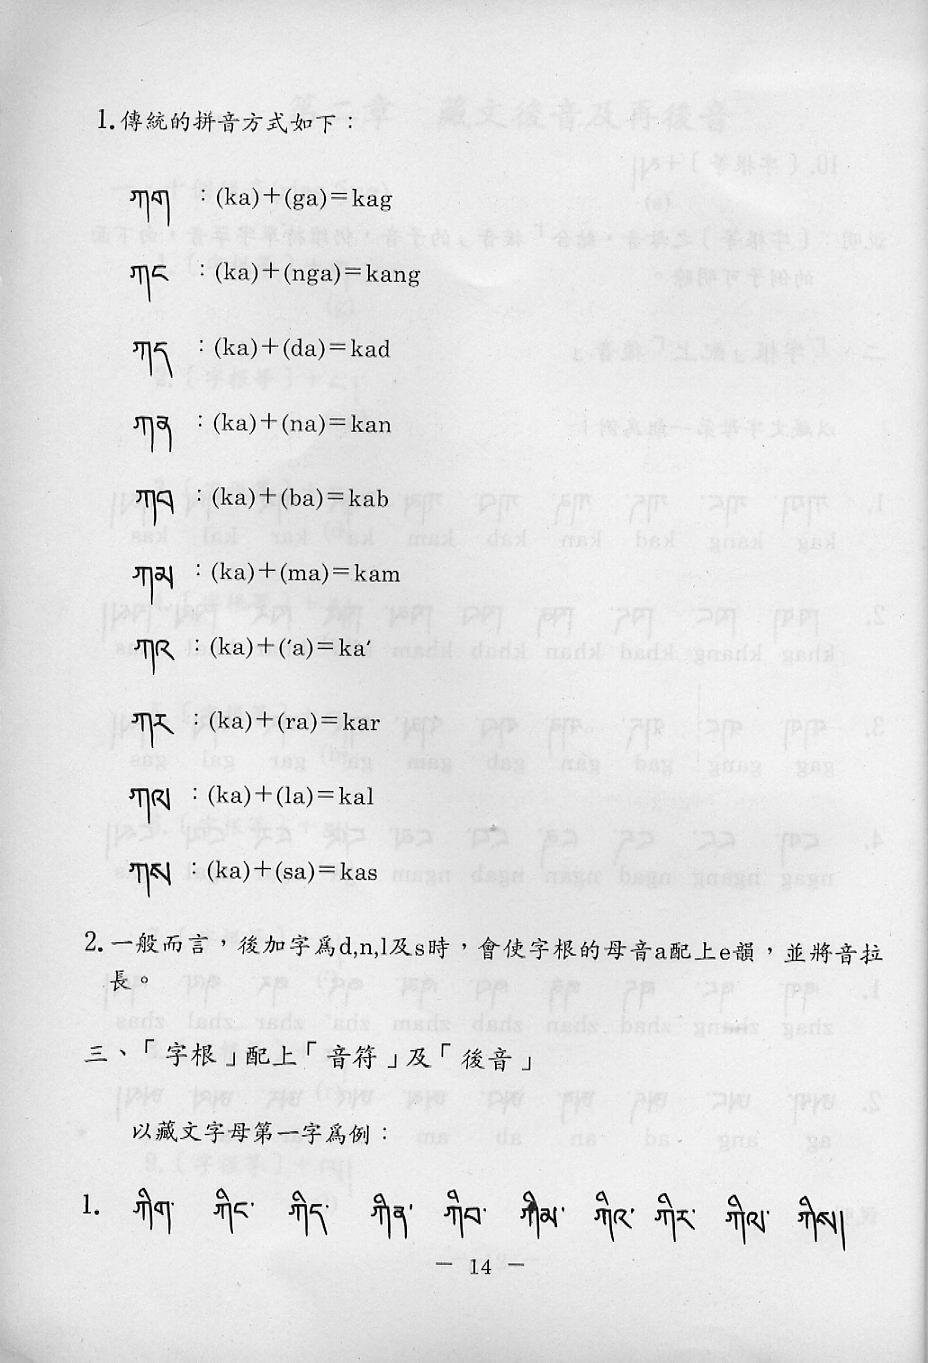 1.傳統的拼音方式如下：
ཀག ：(ka)＋(ga)＝kag
ཀང ：(ka)＋(nga)＝kang
ཀད ：(ka)＋(da)＝kad
ཀན ：(ka)＋(na)＝kan
ཀབ ：(ka)＋(ba)＝kab
ཀམ ：(ka)＋(ma)＝kam
ཀའ ：(ka)＋(′a)＝ka′
ཀར ：(ka)＋(ra)＝kar
ཀལ ：(ka)＋(la)＝kal
ཀས ：(ka)＋(sa)＝kas
2.一般而言，後加字爲d,n,l及s時，會使字根的母音a配上e韻，並將音拉
長。
三、「字根」配上「音符」及「後音」
以藏文字母第一字爲例：
1. ཀིག་ ཀིང་ ཀིད་ ཀིན་ ཀིབ་ ཀིམ་ ཀིའ་ ཀིར་ ཀིལ་ ཀིས།
— 14 —